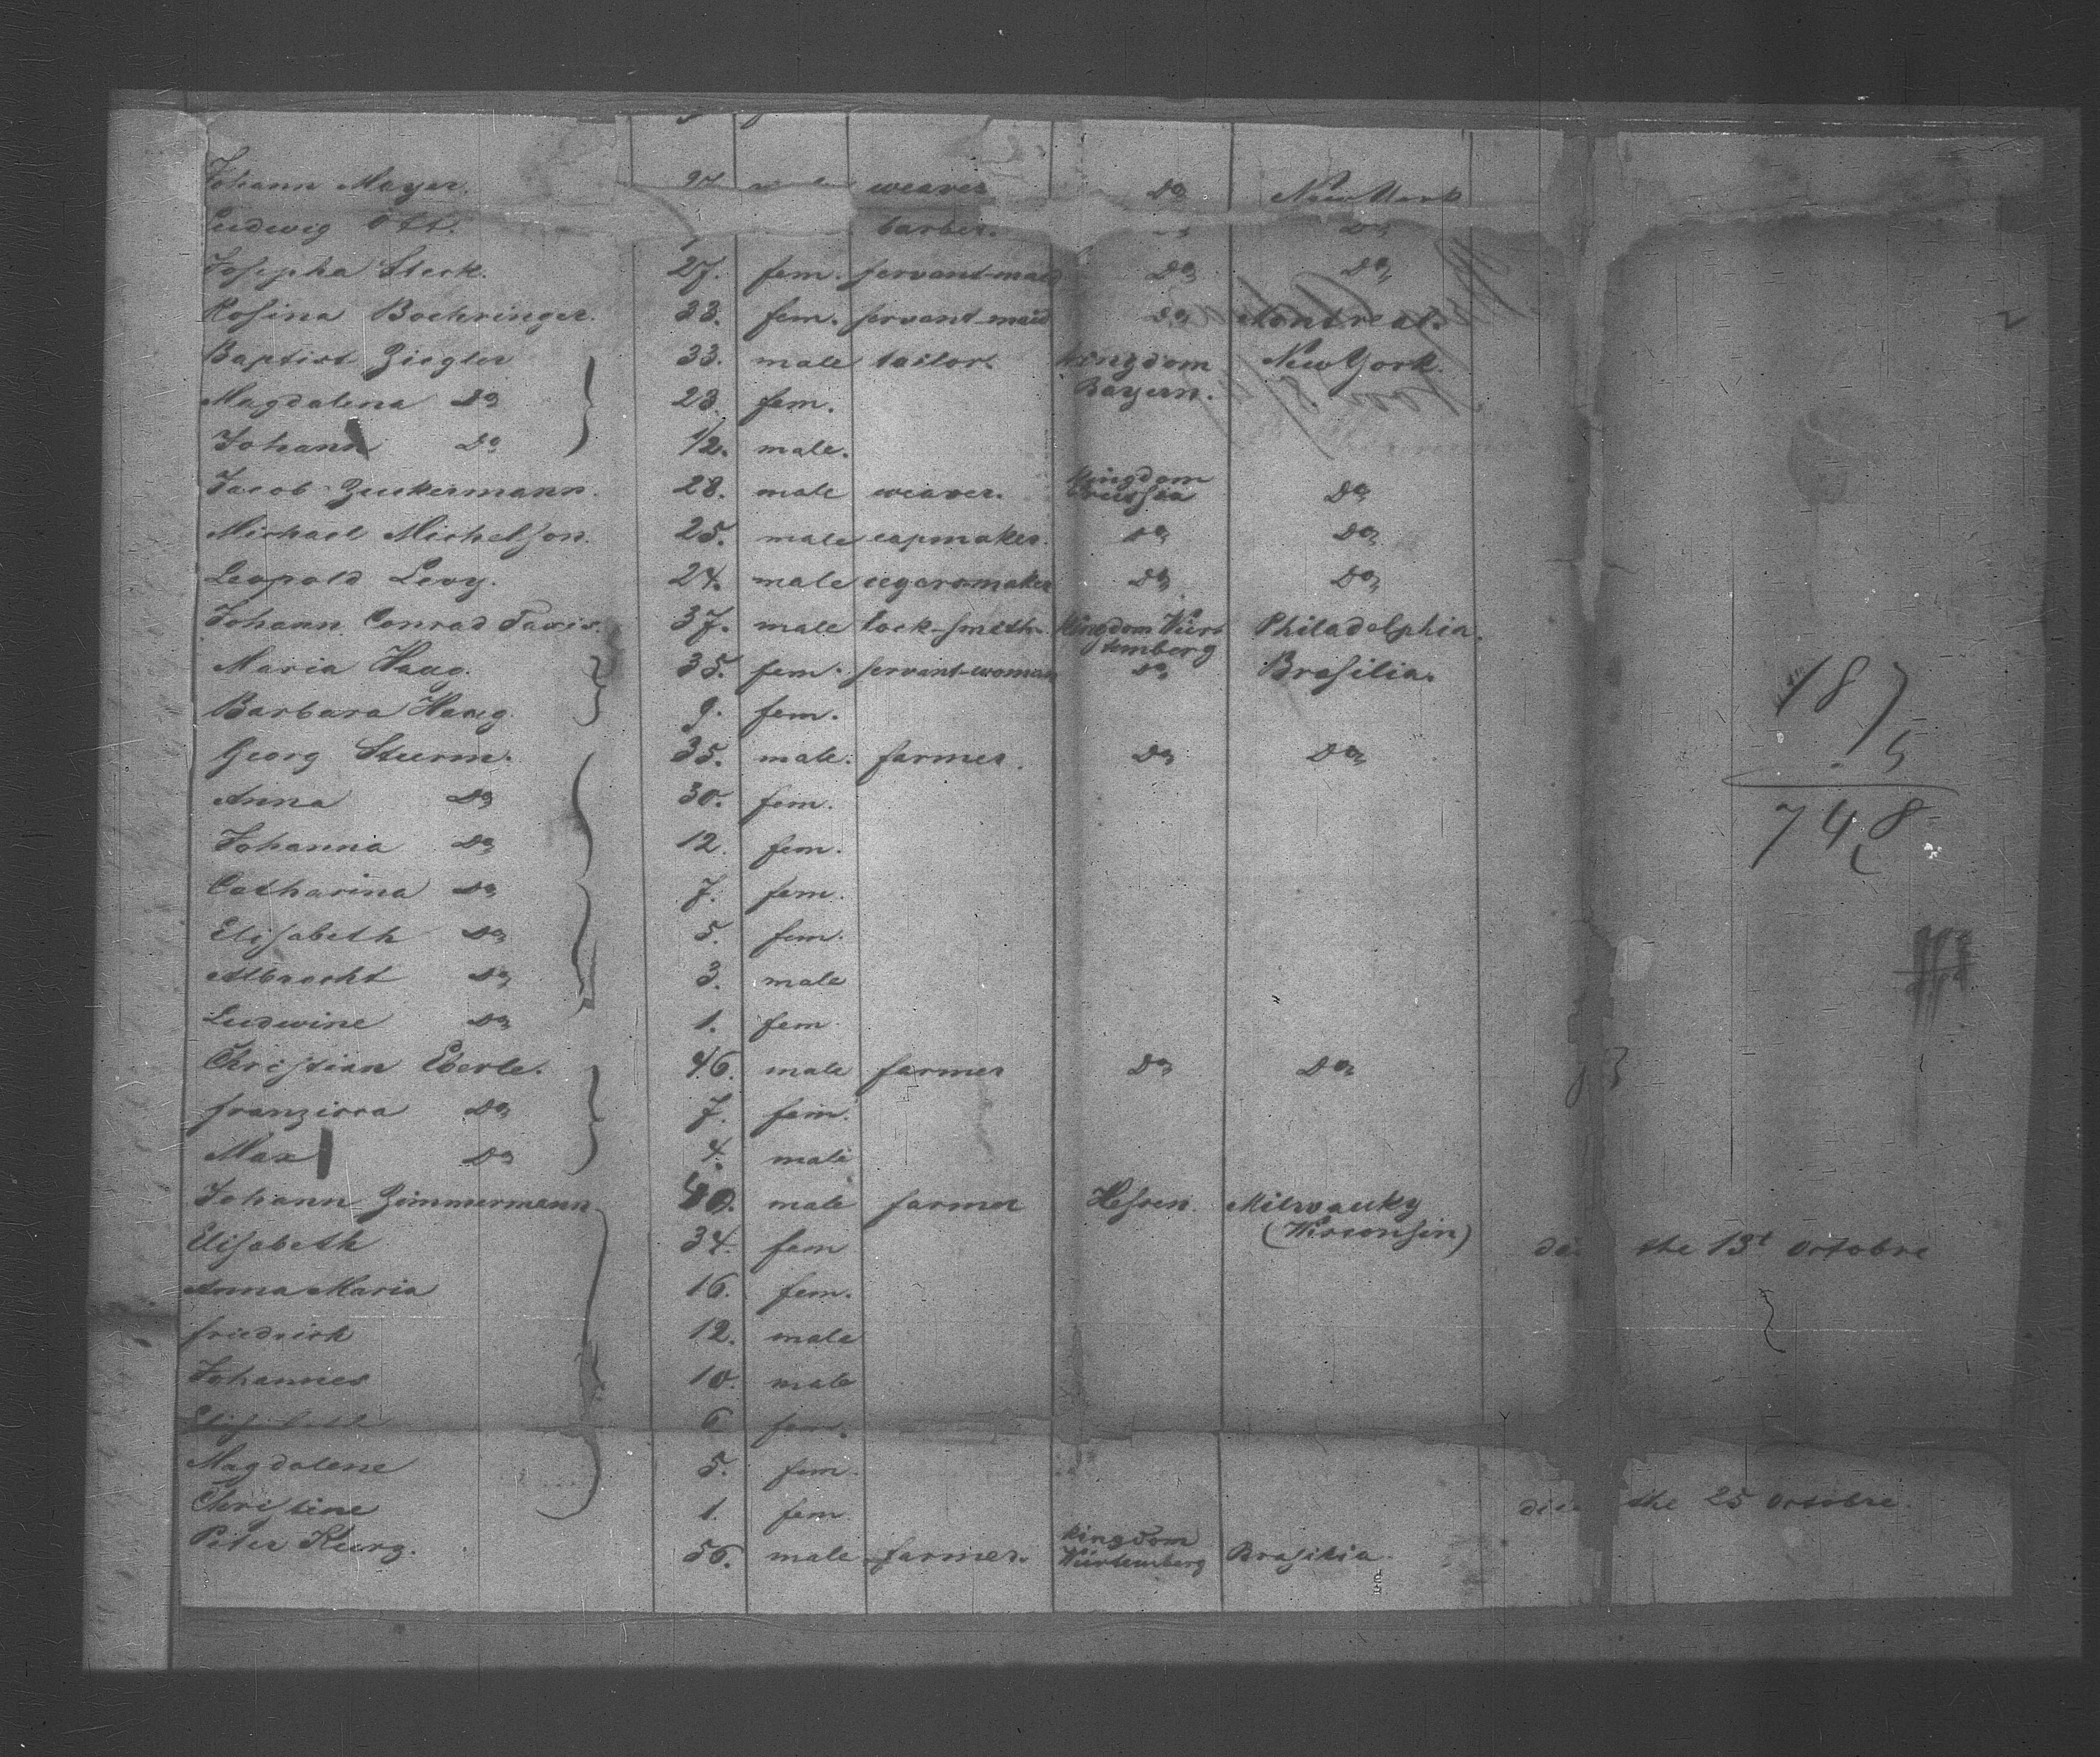 Johann Mayer. weaver Do New York
Ludwig Ott. barber. Do
Josepha Sterk. 27. fem. servant-maid Do Do
Rosina Boehringer. 33. fem. servant-maid Do Montreal.
Baptist Ziegler 33. male tailor. Kingdom New York.
Magdalena Do 23. fem. Bayern.
Johann Do 1/2. male.
Jacob Zuckermann. 28. male weaver. Kingdom Prussia Do
Michael Michelson. 25. male capmaker. Do Do
Leopold Levy. 24. male cegarsmaker Do Do
Johann Conrad 37. male lock-smith. Kingdom Würt Philadelphia.
temberg
Maria Haug. 35. fem. servant-woman Do Brasilia.
Barbara Haug. 9. fem.
Georg Sturm. 35. male. farmer. Do Do
Anna Do 30. fem.
Johanna Do 12. fem.
Catharina Do 7. fem.
Elisabeth Do 5. fem.
Albrecht Do 3. male
Ludwine Do 1. fem
Christian Eberle. 46. male farmer Do Do
franzisca Do 7. fem.
Max Do 4. male
Johann Zimmermann 40. male farmer Hessen. Milwauky
(Wisconsin)
Elisabeth 34. fem the 13t Octobre
Anna Maria 16. fem.
friedrich 12. male
Johannes 10. male
Elisabeth 6 fem.
Magdalene 5. fem.
Christine 1. fem the 25 Octobre.
Peter Kurz. 56. male farmer. Kingdom Würtemberg Brasilia.
187
5
748